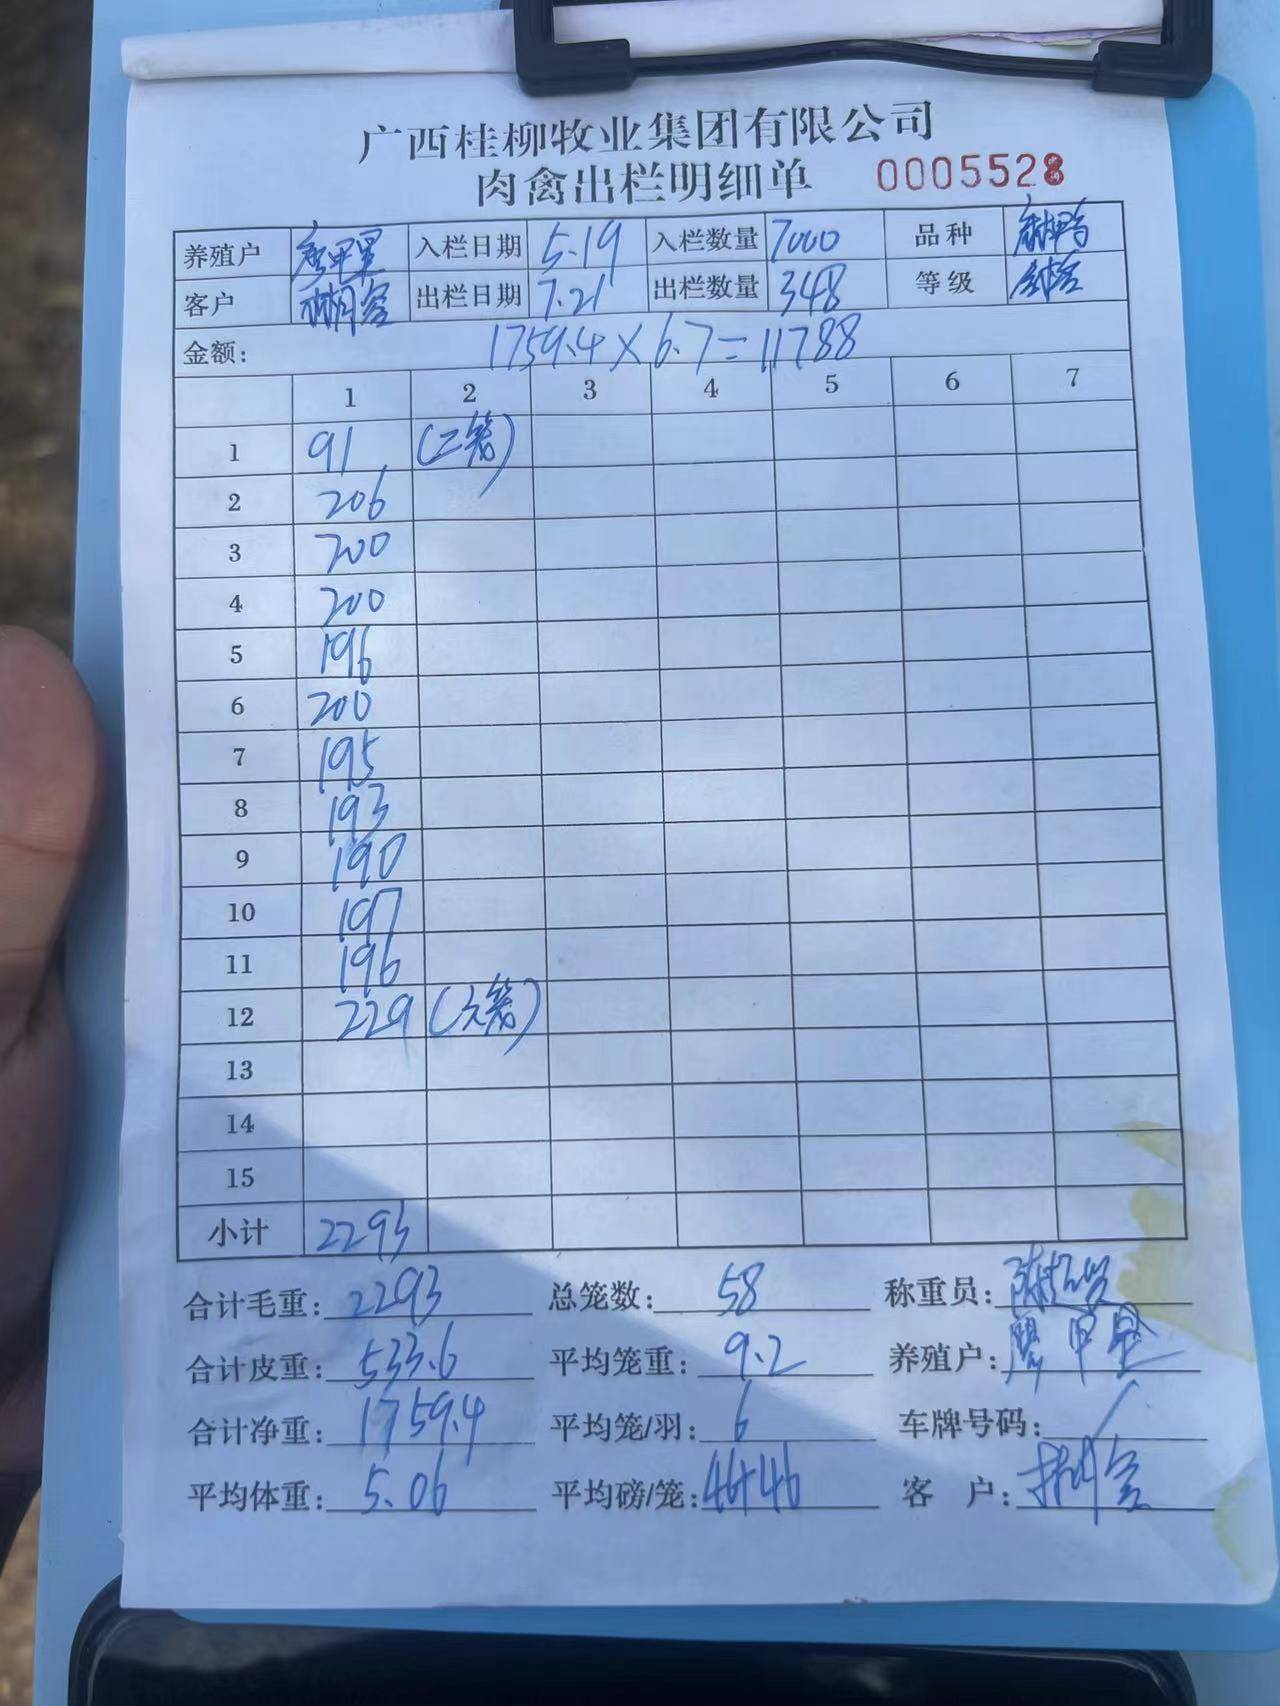 广西桂柳牧业集团有限公司
肉禽出栏明细单 0005528
养殖户 入栏日期 5.19 入栏数量 7000 品种 麻鸭
客户 出栏日期 7.21 出栏数量 348 等级
金额: 1759.4×6.7=11788
1 2 3 4 5 6 7
1 91 (二笼)
2 206
3 200
4 200
5 196
6 200
7 195
8 193
9 190
10 197
11 196
12 229 (六笼)
13
14
15
小计 2293
合计毛重: 2293 总笼数: 58 称重员:
合计皮重: 533.6 平均笼重: 9.2 养殖户:
合计净重: 1759.4 平均笼/羽: 6 车牌号码: /
平均体重: 5.06 平均磅/笼: 46+46 客 户: